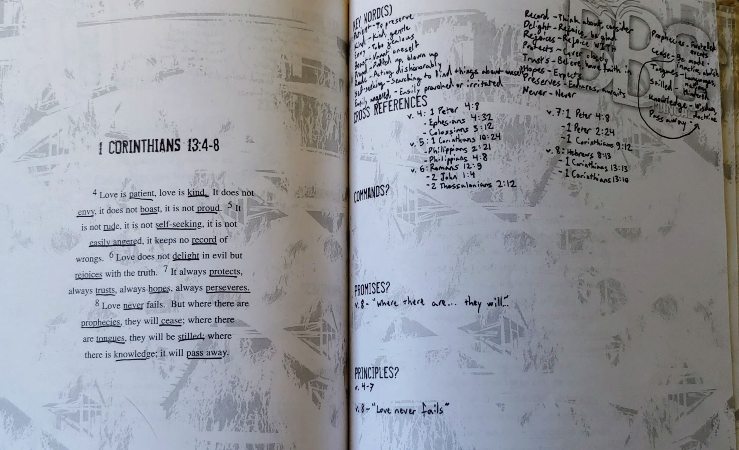 1 CORINTHIANS 13:4-8
4 Love is patient, love is kind. It does not
envy, it does not boast, it is not proud. 5 It
is not rude, it is not self-seeking, it is not
easily angered, it keeps no record of
wrongs. 6 Love does not delight in evil but
rejoices with the truth. 7 It always protects,
always trusts, always hopes, always perseveres.
8 Love never fails. But where there are
prophecies, they will cease; where there
are tongues, they will be stilled; where
there is knowledge; it will pass away.
KEY WORD(S)
Patient - To preserve
Kind - Kind, gentle
Envy - To be jealous
Boast - Vaunt oneself
Proud - Puffed up, blown up
Rude - Acting dishonorably
Self-seeking - Searching to find things about
Easily angered - Easily provoked or irritated
Record - Think about, consider
Delight - Rejoice, be glad
Rejoices - Rejoice with
Protects - Cover closely
Trusts - Believe, have faith in
Hopes - Expects
Preserves - Endures, awaits
Never - Never
Prophecies -
Cease - Be made
Tongues -
Stilled -
Knowledge - Wisdom
doctrine
Pass away
CROSS REFERENCES
v. 4: 1 Peter 4:8
- Ephesians 4:32
- Colossians 3:12
v. 5: 1 Corinthians 10:24
- Philippians 2:21
- Philippians 4:8
v. 6: Romans 12:9
- 2 John 1:4
- 2 Thessalonians 2:12
v. 7: 1 Peter 4:8
- 1 Peter 2:24
- 1 Corinthians 9:12
v. 8: Hebrews 8:13
- 1 Corinthians 13:13
- 1 Corinthians 13:10
COMMANDS?
PROMISES?
v. 8 - "Where there are... they will..."
PRINCIPLES?
v. 4-7
v. 8 - "Love never fails"